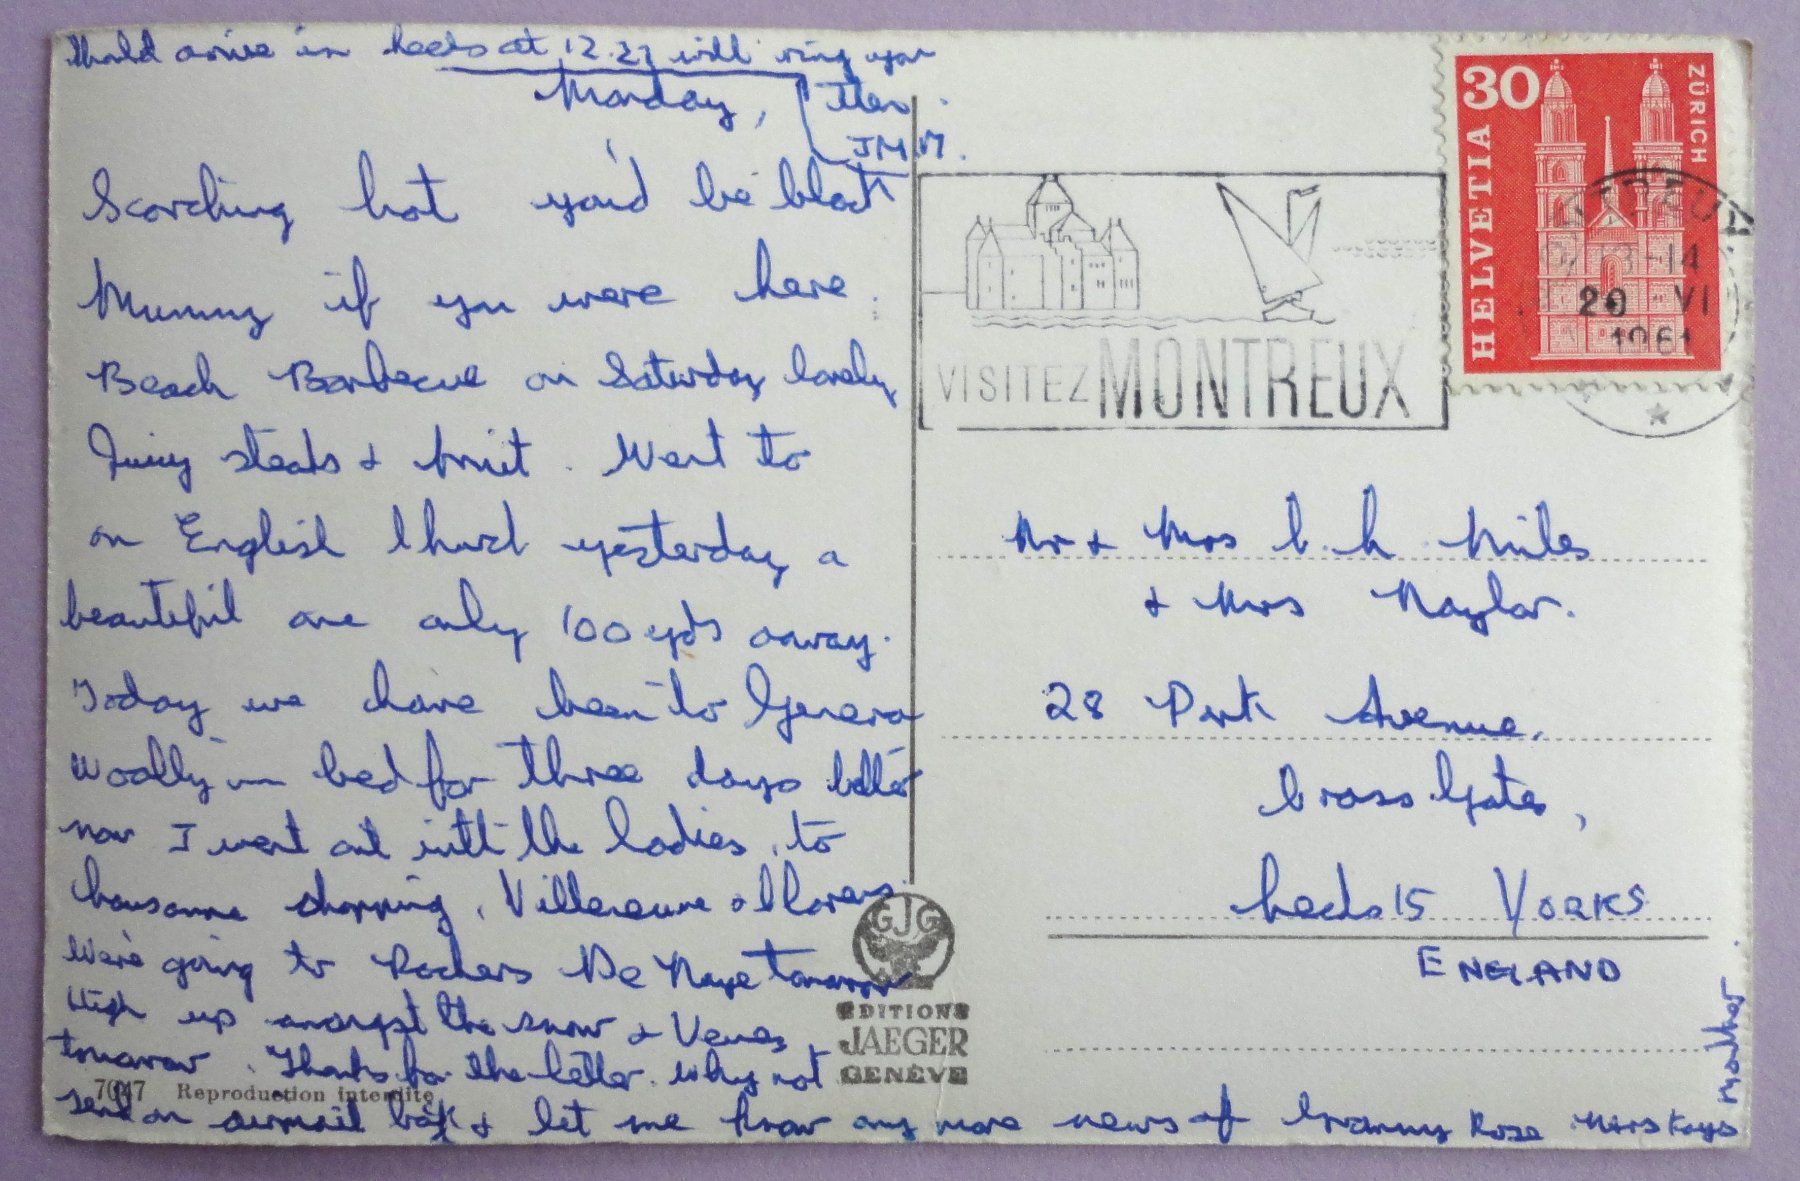 should arrive in Leeds at 12.27 will ring you
then.
J M M.
Monday,
Scorching hot you'd be black
Mummy if you were here.
Beach Barbecue on Saturday lovely
Juicy steaks & fruit. Went to
an English Church yesterday a
beautiful one only 100 yds away.
Today we have been to Geneva
Woolly in bed for three days better
now I went out with the ladies, to
Lausanne shopping, Villeneuve &
We're going to Rochers De Naye tomorrow
High up amongst the snow &
tomorrow. Thanks for the letter. Why not
send an airmail back & let me know any more news of Granny Rose Mrs Kays
Mother.
HELVETIA 30 ZÜRICH
MONTREUX
13-14
20 VI
1961
VISITEZ MONTREUX
Mr & Mrs C. H. Miles
& Mrs Naylor.
28 Park Avenue,
Cross Gates,
Leeds 15 YORKS
ENGLAND
GJG
EDITIONS
JAEGER
GENÈVE
7047 Reproduction interdite